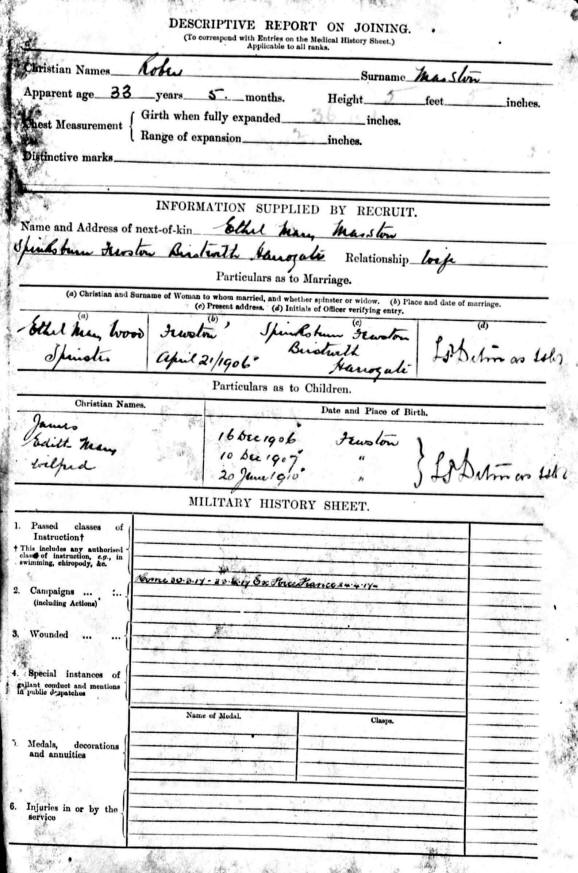 DESCRIPTIVE REPORT ON JOINING.
(To correspond with Entries on the Medical History Sheet.)
Applicable to all ranks.
Christian Names Surname Marston
Apparent age 33 years 5. months. Height 5 feet inches.
Chest Measurement { Girth when fully expanded 36 inches.
Range of expansion 2 inches.
Distinctive marks
INFORMATION SUPPLIED BY RECRUIT.
Name and Address of next-of-kin Ethel Mary Marston
Spinksburn Fewston Birstwith Harrogate Relationship wife
Particulars as to Marriage.
(a) Christian and Surname of Woman to whom married, and whether spinster or widow. (b) Place and date of marriage.
(c) Present address. (d) Initials of Officer verifying entry.
(a) (b) (c) (d)
Ethel Mary Wood Fewston Spinksburn Fewston
Spinster April 21/1906 Birstwith
Harrogate
Particulars as to Children.
Christian Names. Date and Place of Birth.
James 16 Dec 1906 Fewston
Edith Mary 10 Dec 1907 "
Wilfred 20 June 1910 "
MILITARY HISTORY SHEET.
1. Passed classes of
Instruction†
† This includes any authorised
class of instruction, e.g., in
swimming, chiropody, &c.
2. Campaigns ... ... Home Ex Force France 24-4-17-
(including Actions)
3. Wounded ... ...
4. Special instances of
gallant conduct and mentions
in public despatches
Name of Medal. Clasps.
5. Medals, decorations
and annuities
6. Injuries in or by the
service